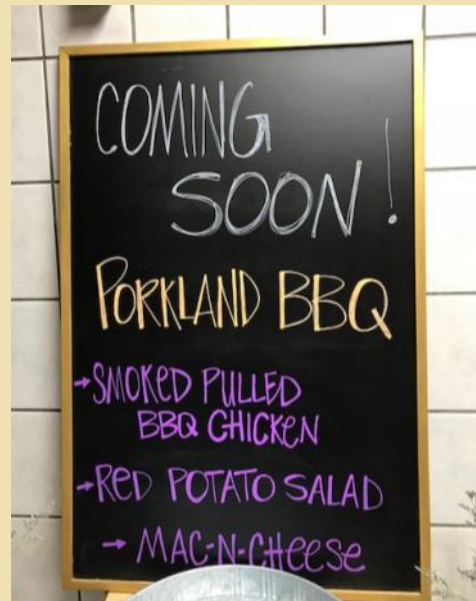 COMING
SOON!
PORKLAND BBQ
→SMOKED PULLED
BBQ CHICKEN
→RED POTATO SALAD
→ MAC-N-CHEESE